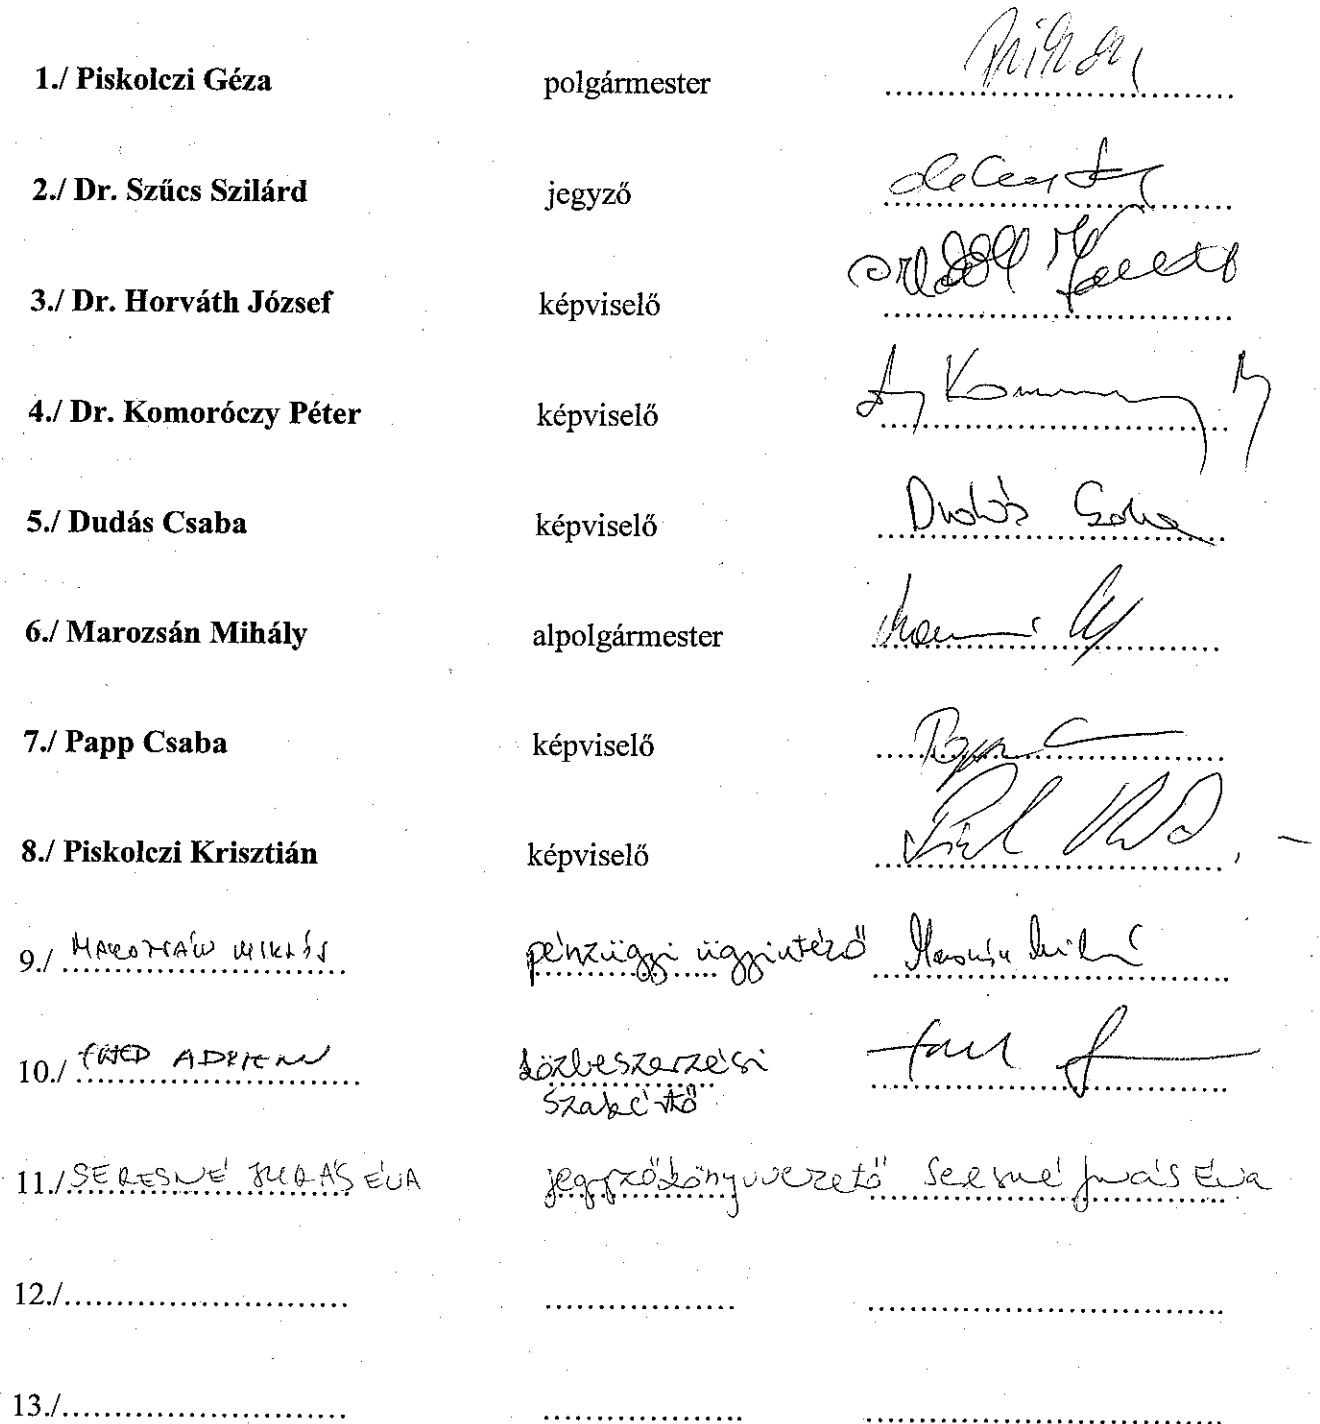 1./ Piskolczi Géza polgármester ........................
2./ Dr. Szűcs Szilárd jegyző ........................
3./ Dr. Horváth József képviselő ........................
4./ Dr. Komoróczy Péter képviselő ........................
5./ Dudás Csaba képviselő Dudás Csaba
6./ Marozsán Mihály alpolgármester ........................
7./ Papp Csaba képviselő ........................
8./ Piskolczi Krisztián képviselő ........................
9./ MAROZSÁN MIKLÓS pénzügyi ügyintéző
10./ ADRIENN közbeszerzési
szakértő
11./ SERESNÉ JUHÁS ÉVA jegyzőkönyvvezető Seresné Juhás Éva
12./........................... .................. ..................................
13./........................... ................... ..................................